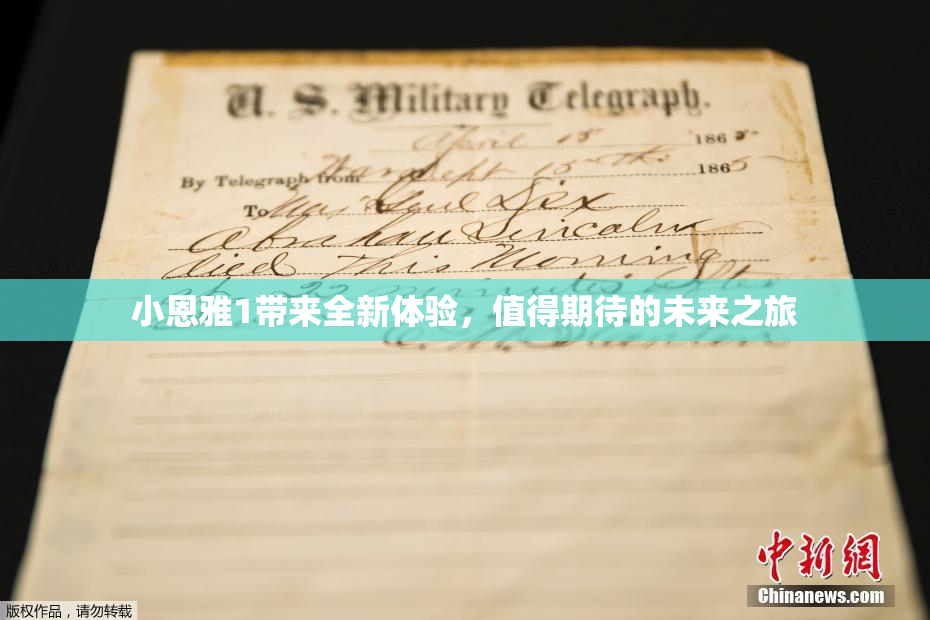 U. S. Military Telegraph.
April 15 1865
By Telegraph from War Dept 15th 1865
To Maj Genl Dix
Abraham Lincoln
died This Morning
at 22 minutes after
小恩雅1带来全新体验，值得期待的未来之旅
E. M. Stanton
中新网
Chinanews.com
版权作品，请勿转载